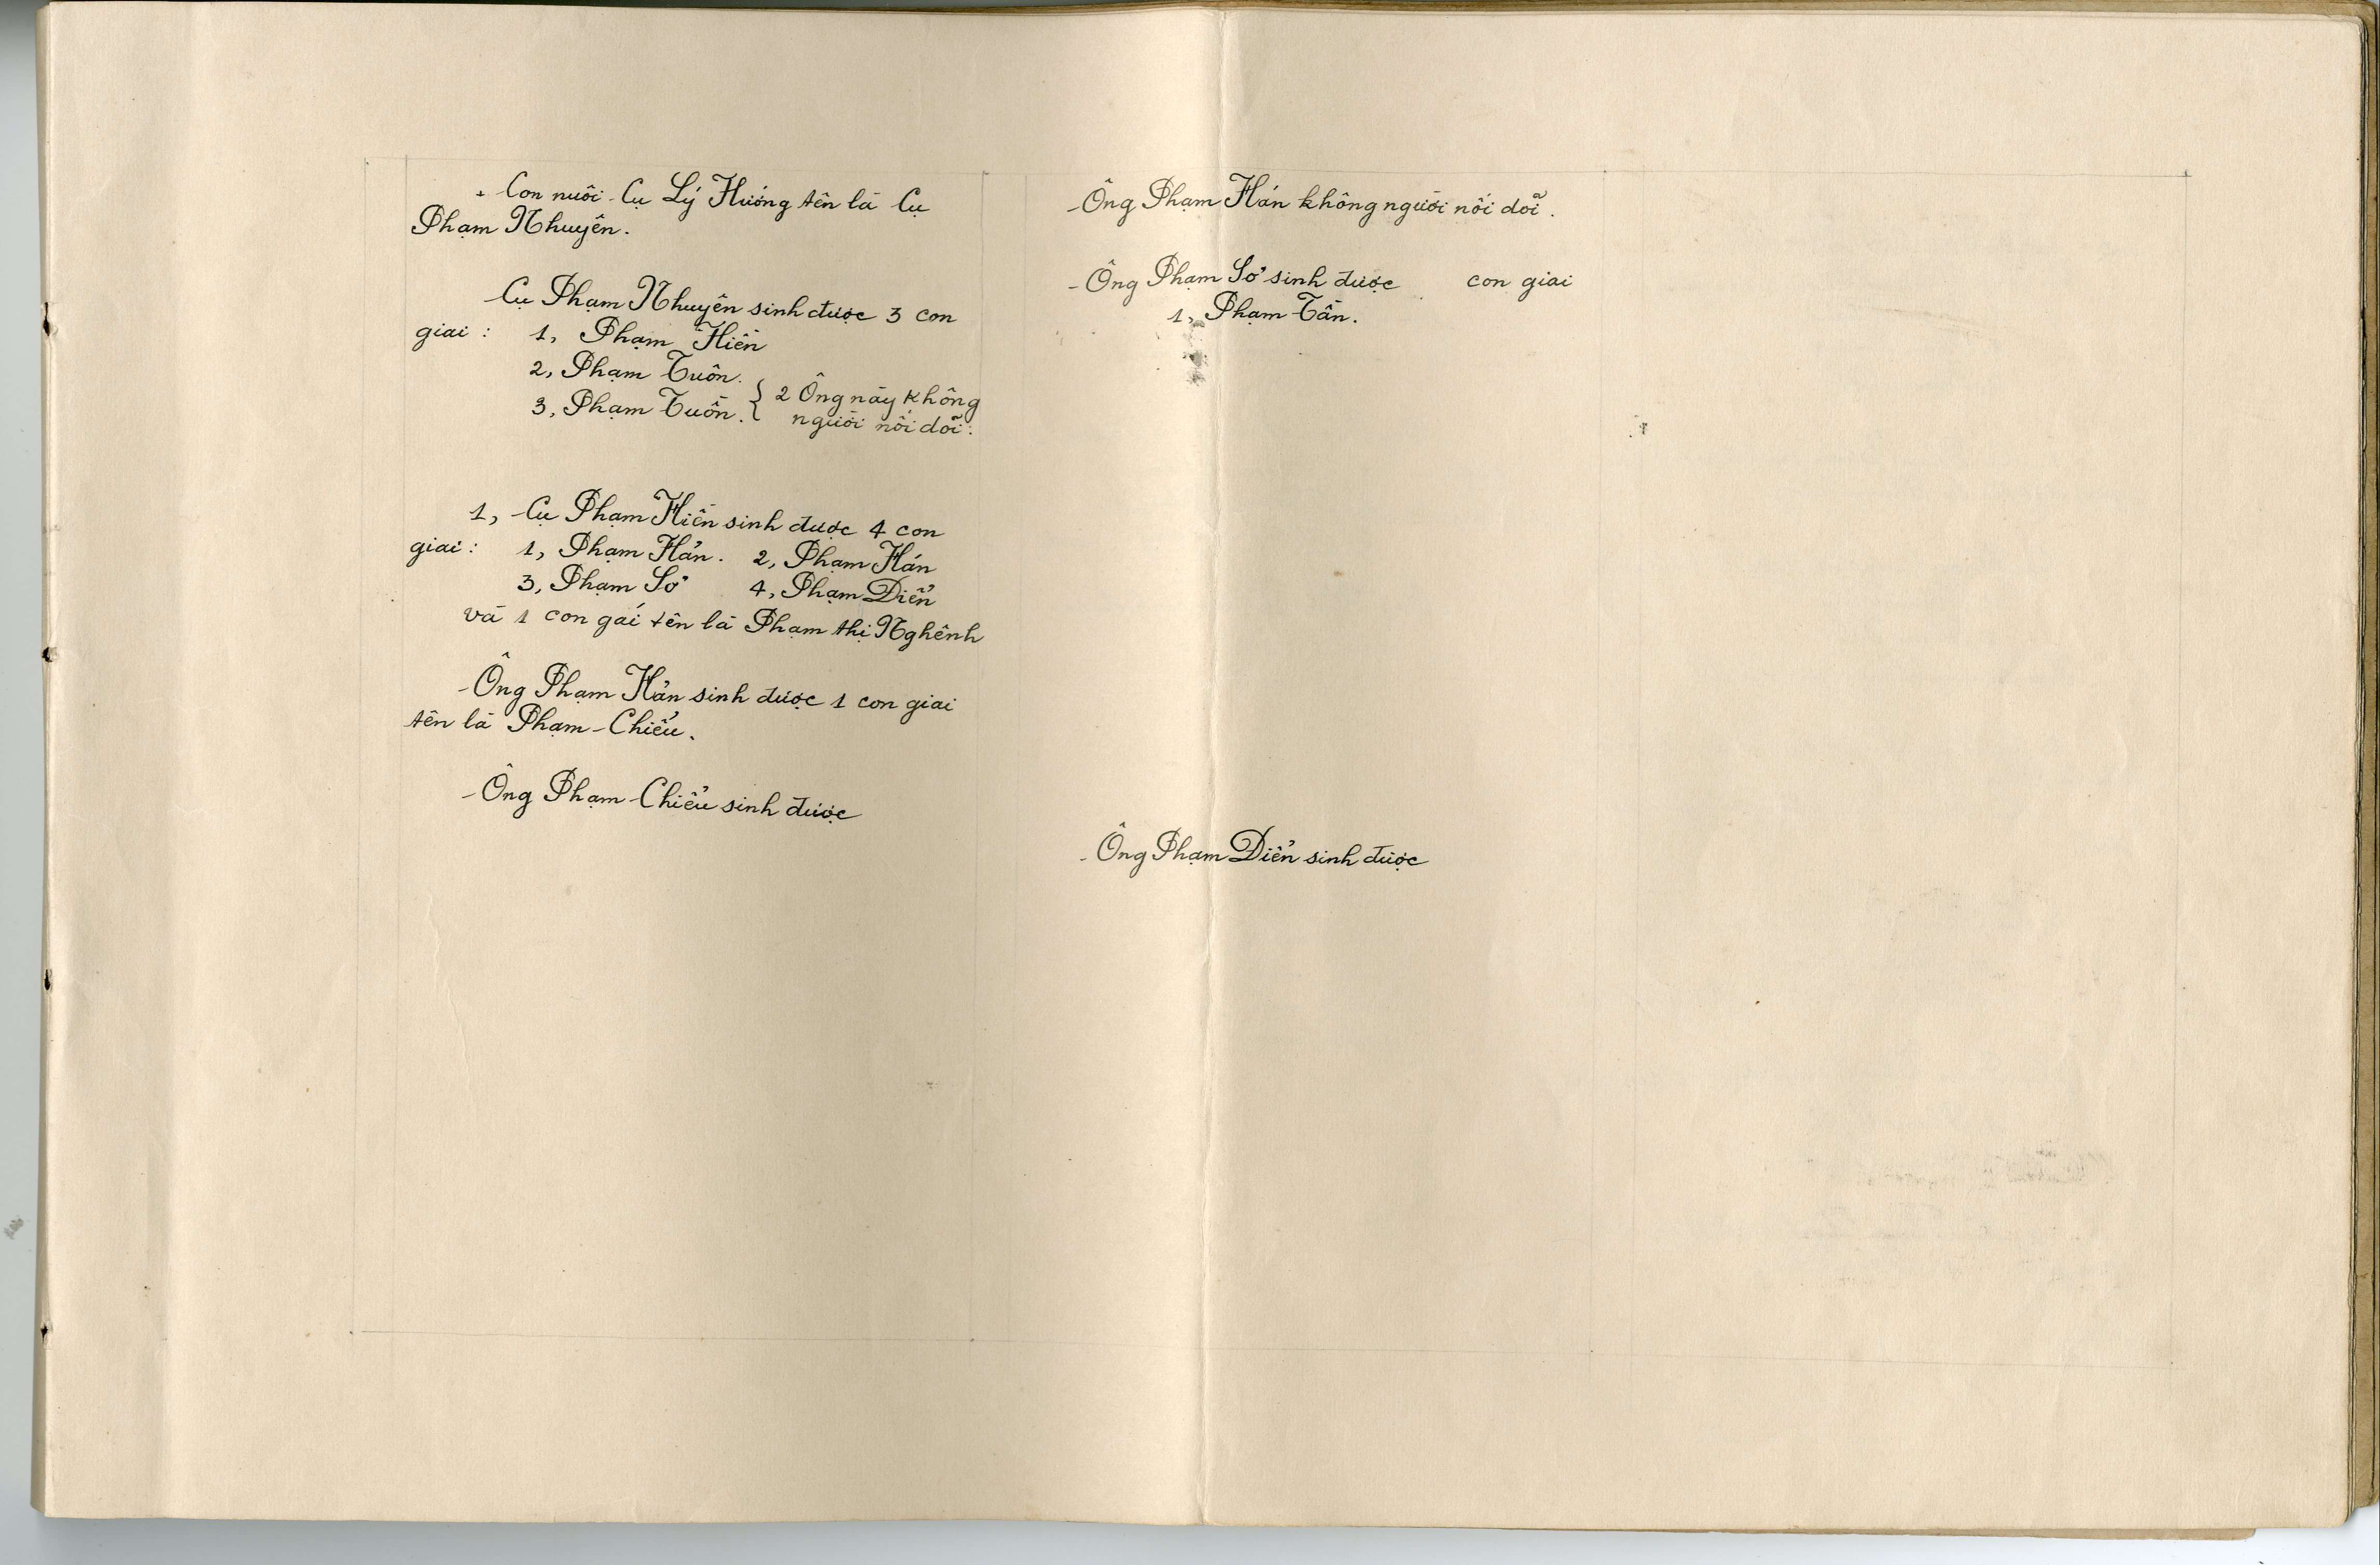 + Con nuôi Cụ Lý Hướng tên là Cụ
Phạm Nhuyên.
Cụ Phạm Nhuyên sinh được 3 con
giai : 1, Phạm Hiền
2, Phạm Tuôn.
3, Phạm Tuồn. } 2 Ông này không
người nối dõi.
1, Cụ Phạm Hiền sinh được 4 con
giai : 1, Phạm Hản. 2, Phạm Hán
3, Phạm Sơ 4, Phạm Diễn
và 1 con gái tên là Phạm thị Nghênh
- Ông Phạm Hản sinh được 1 con giai
tên là Phạm Chiểu.
- Ông Phạm Chiểu sinh được
- Ông Phạm Hán không người nối dõi.
- Ông Phạm Sơ sinh được con giai
1, Phạm Tân.
- Ông Phạm Diễn sinh được